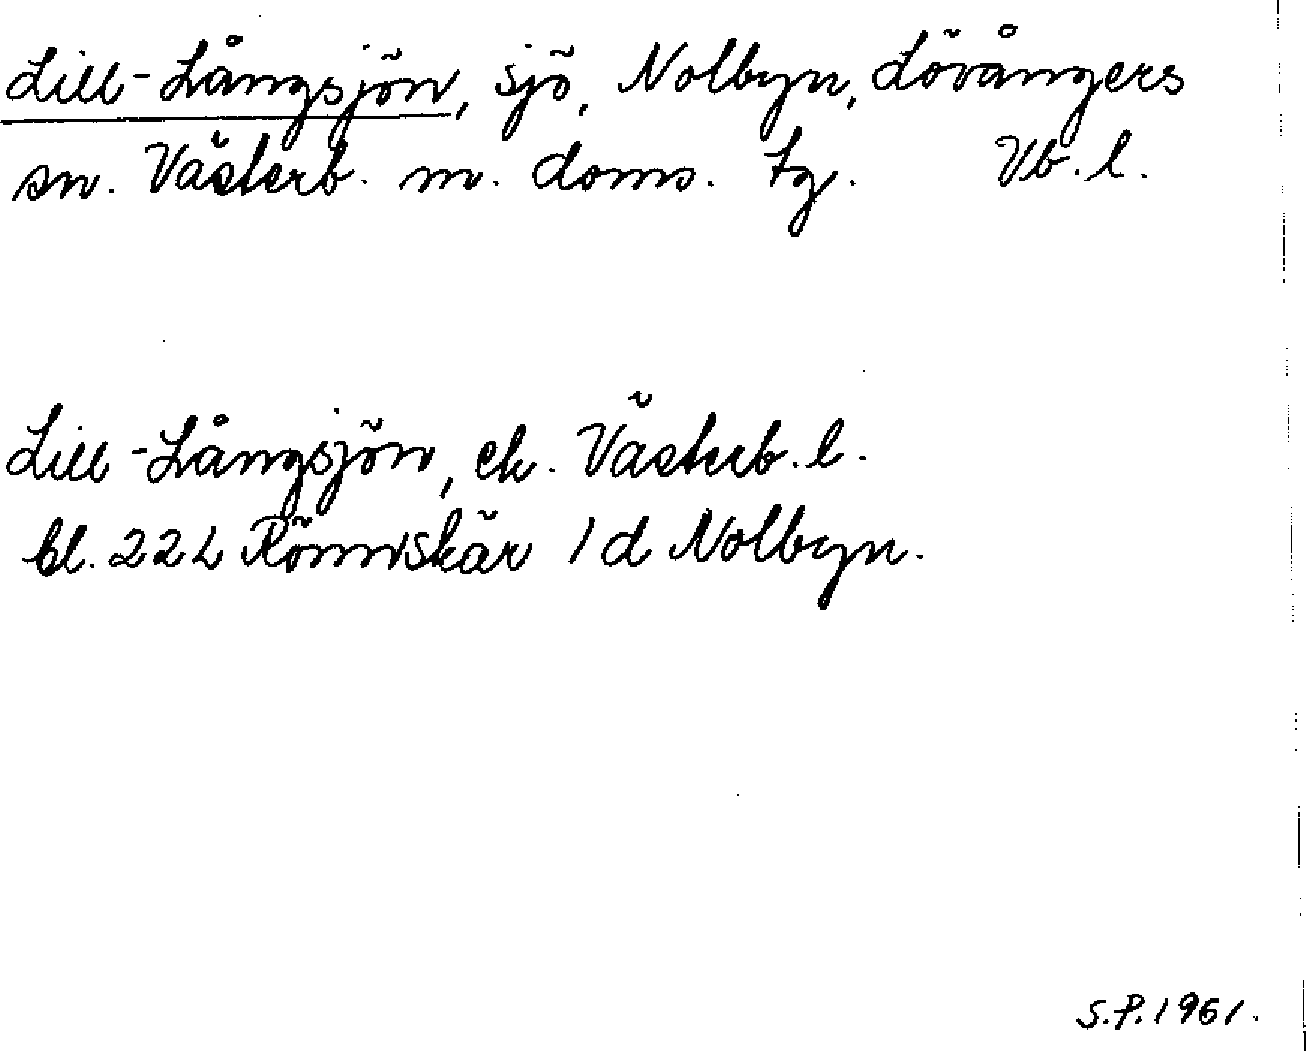 Lill-Långsjön, sjö, Nolbyn, Lövångers
sn. Västerb. m. doms. tg. Vb. l.
Lill-Långsjön, ek. Västerb. l.
bl. 22 L Rönnskär 1 d Nolbyn.
S.P. 1961.